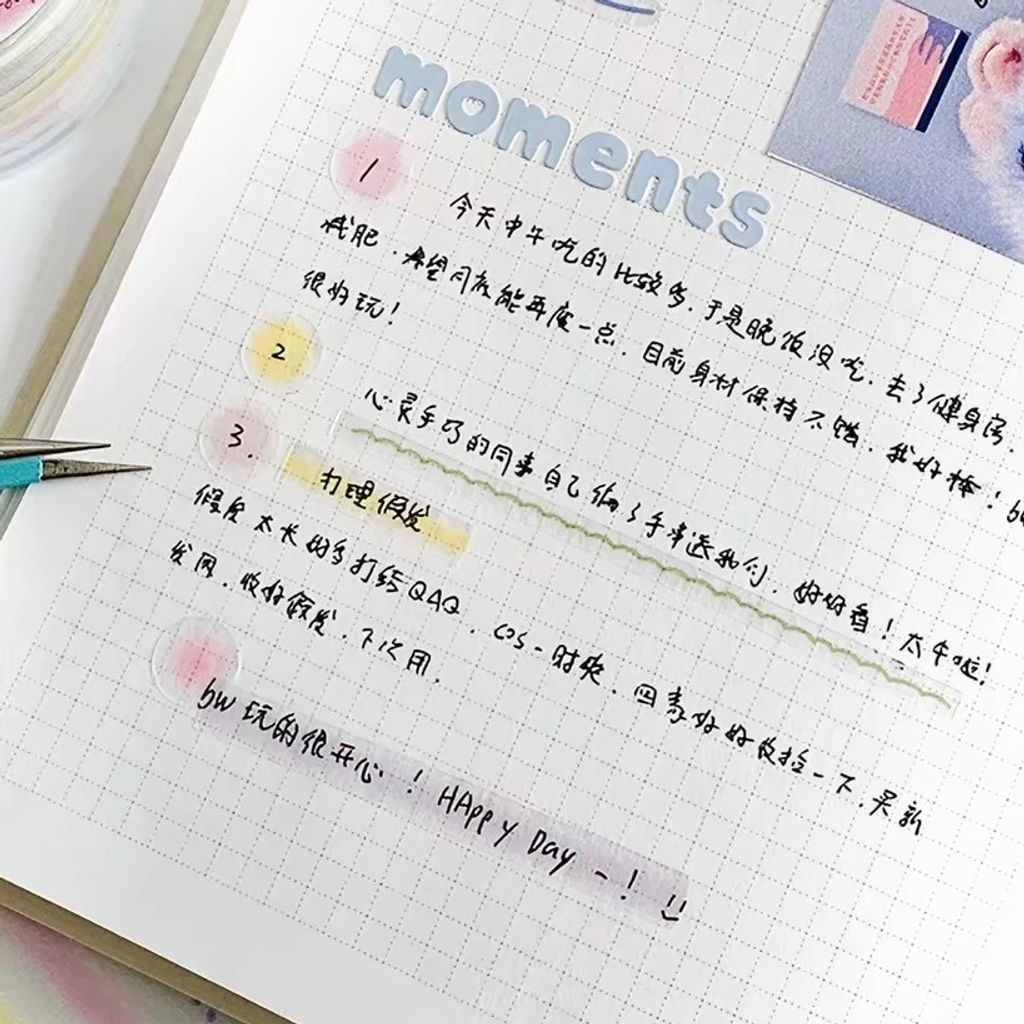 moments
1
今天中午吃的比较多.于是晚饭没吃.去了健身房.
减肥.希望月底能再瘦一点.目前身材保持不错.我好棒!bw
很好玩!
2
心灵手巧的同事自己编了手串送我们.好好看!太牛啦!
3.
打理假发
假发太长好多打结QAQ.cos一时爽.回家好好收拾一下.买新
发网.收好假发.下次用.
bw玩的很开心!HAppy Day~!